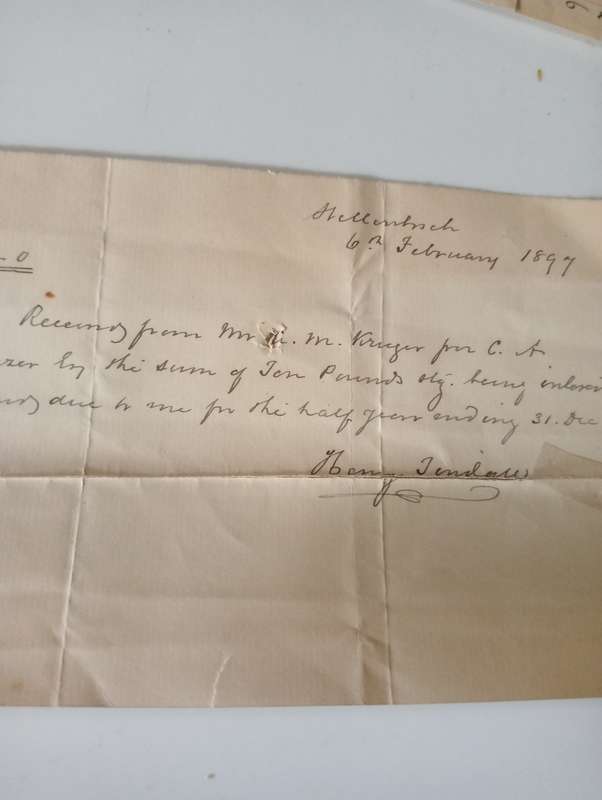 Stellenbosch
6th February 1897
0
Received from Mr M. Kruger for C. A.
by the sum of Ten Pounds stg. being
due to me for the half year ending 31. Dec
Henry Tindall
6